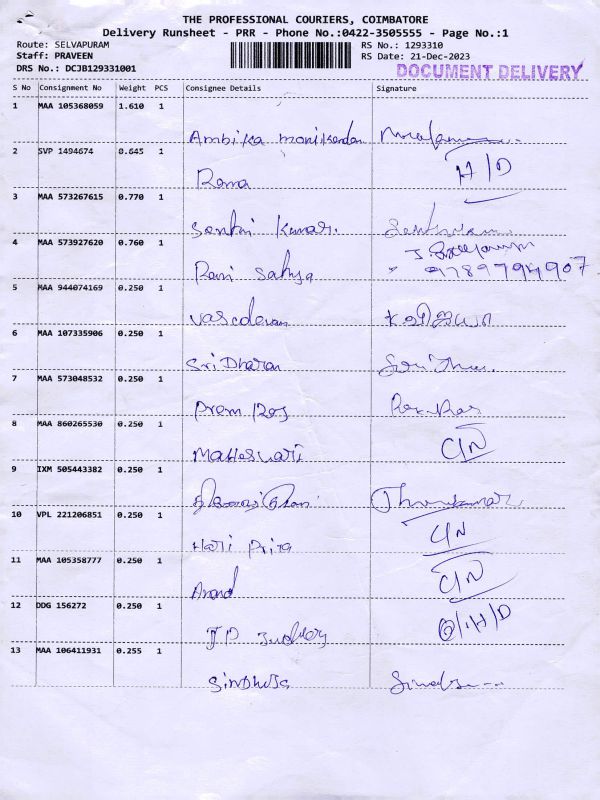 THE PROFESSIONAL COURIERS, COIMBATORE
Delivery Runsheet - PRR - Phone No.:0422-3505555 - Page No.:1
Route: SELVAPURAM
RS No.: 1293310
Staff: PRAVEEN
RS Date: 21-Dec-2023
DRS No.: DCJB129331001
DOCUMENT DELIVERY
S No Consignment No Weight PCS Consignee Details Signature
1 MAA 105368059 1.610 1
Ambika
2 SVP 1494674 0.645 1
H/D
Rama
3 MAA 573267615 0.770 1
Kumar.
4 MAA 573927620 0.760 1
Rani Sathya 9789794907
5 MAA 944074169 0.250 1
6 MAA 107335906 0.250 1
SriDharan
7 MAA 573048532 0.250 1
Prem Raj
8 MAA 860265530 0.250 1
C/N
Maheswari
9 IXM 505443382 0.250 1
10 VPL 221206851 0.250 1
C/N
Hari Priya
11 MAA 105358777 0.250 1
C/N
Anand
12 DDG 156272 0.250 1
13 MAA 106411931 0.255 1
Sindhuja